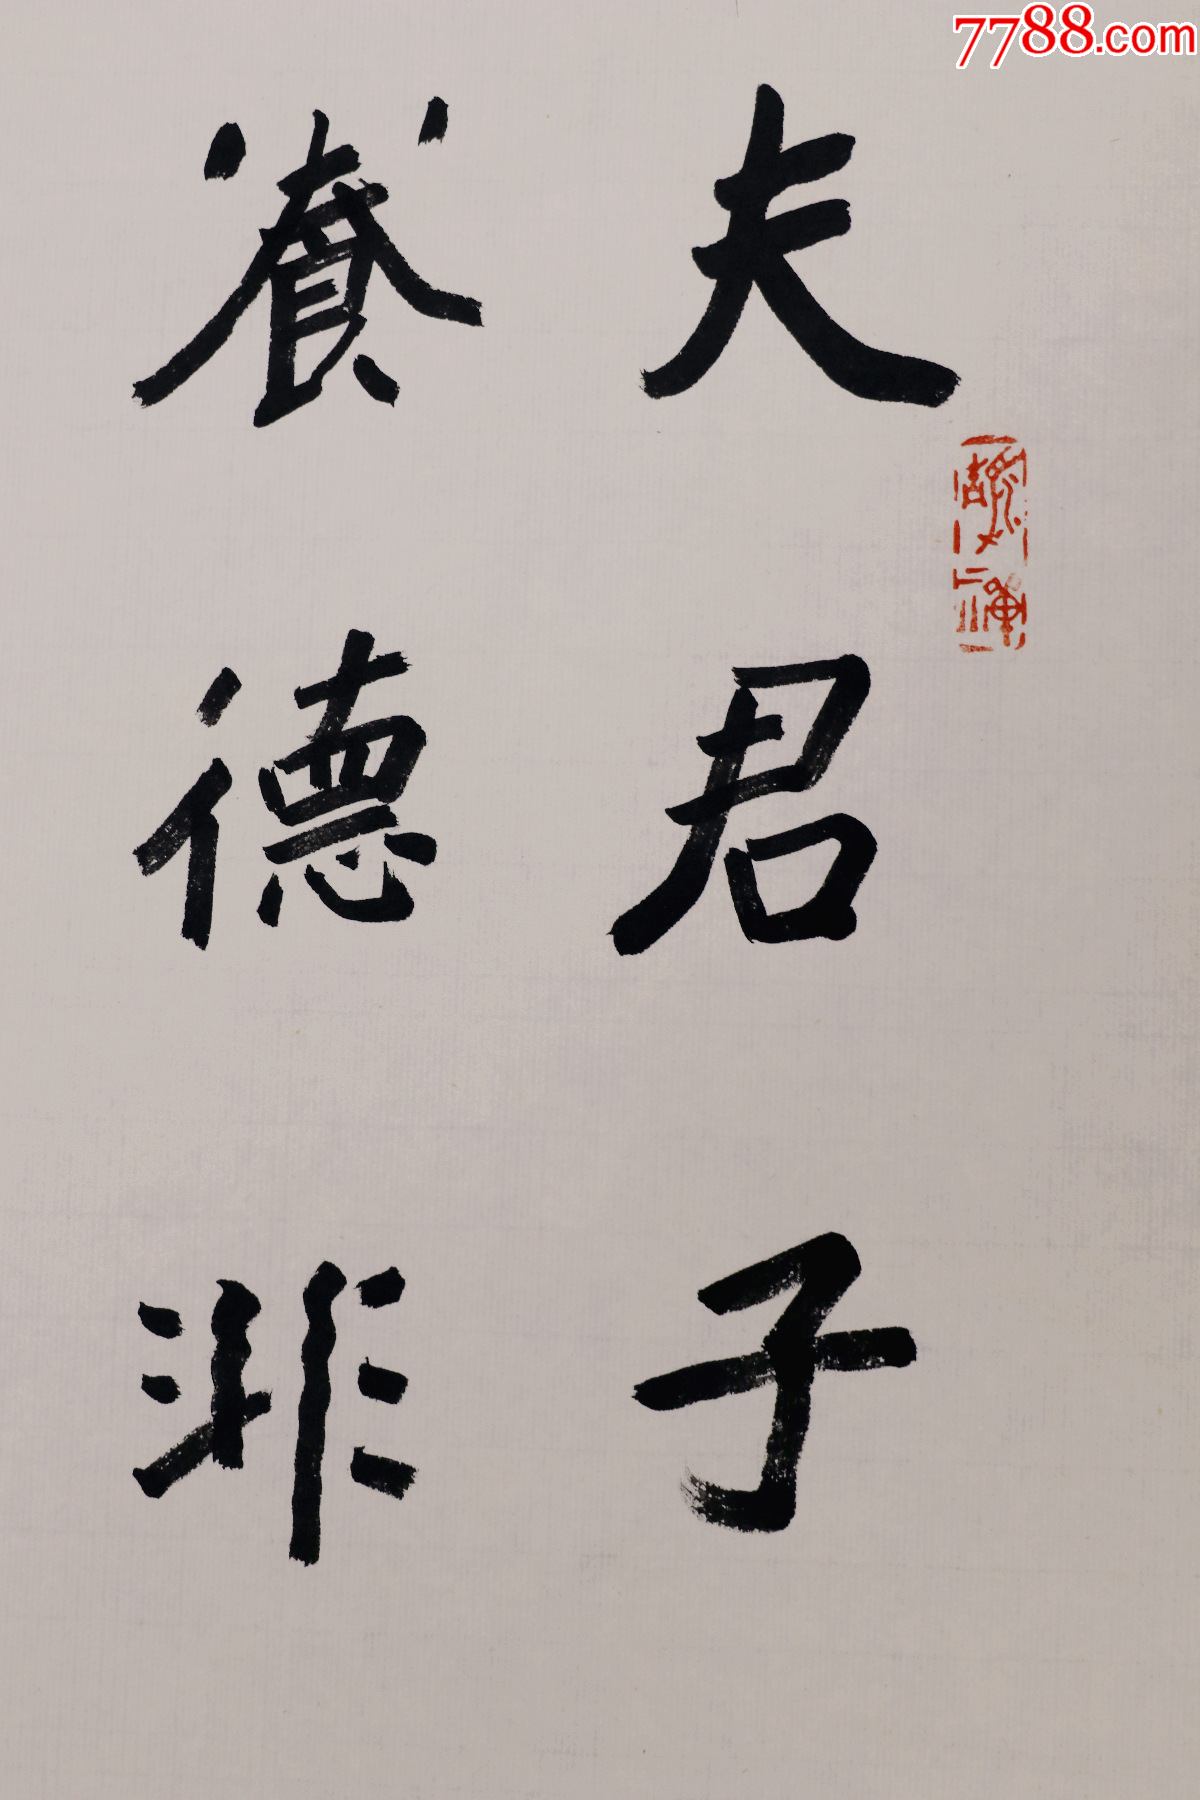 7788.com
夫君子
養德非